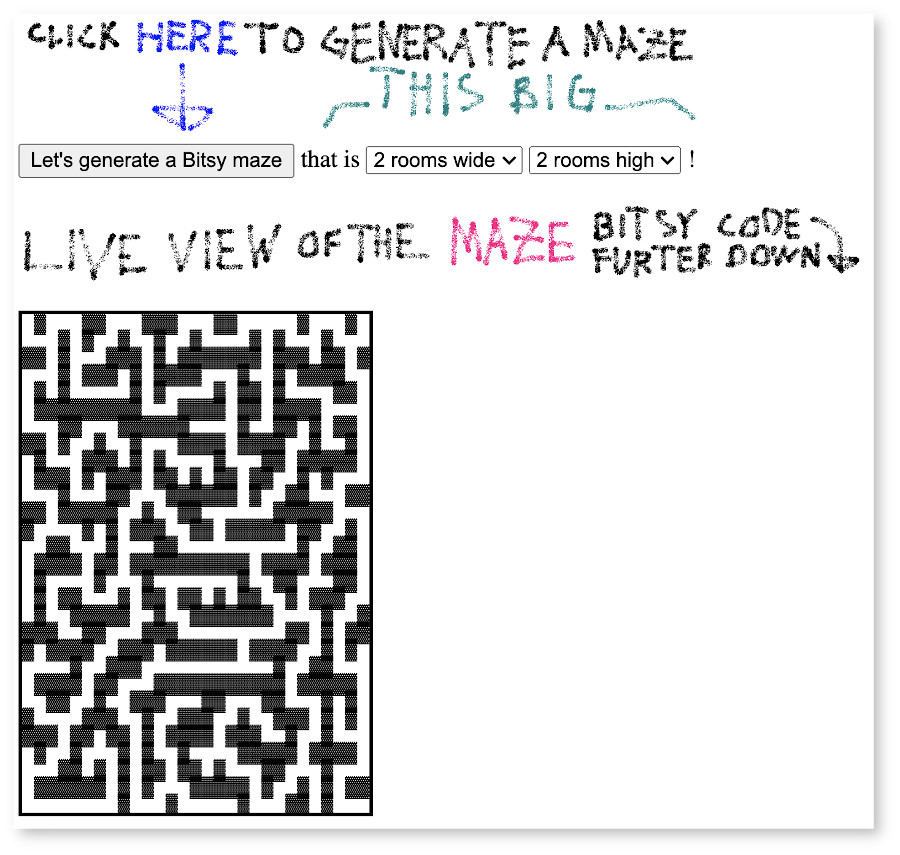 CLICK HERE TO GENERATE A MAZE
THIS BIG
Let's generate a Bitsy maze that is 2 rooms wide 2 rooms high !
LIVE VIEW OF THE MAZE BITSY CODE
FURTER DOWN